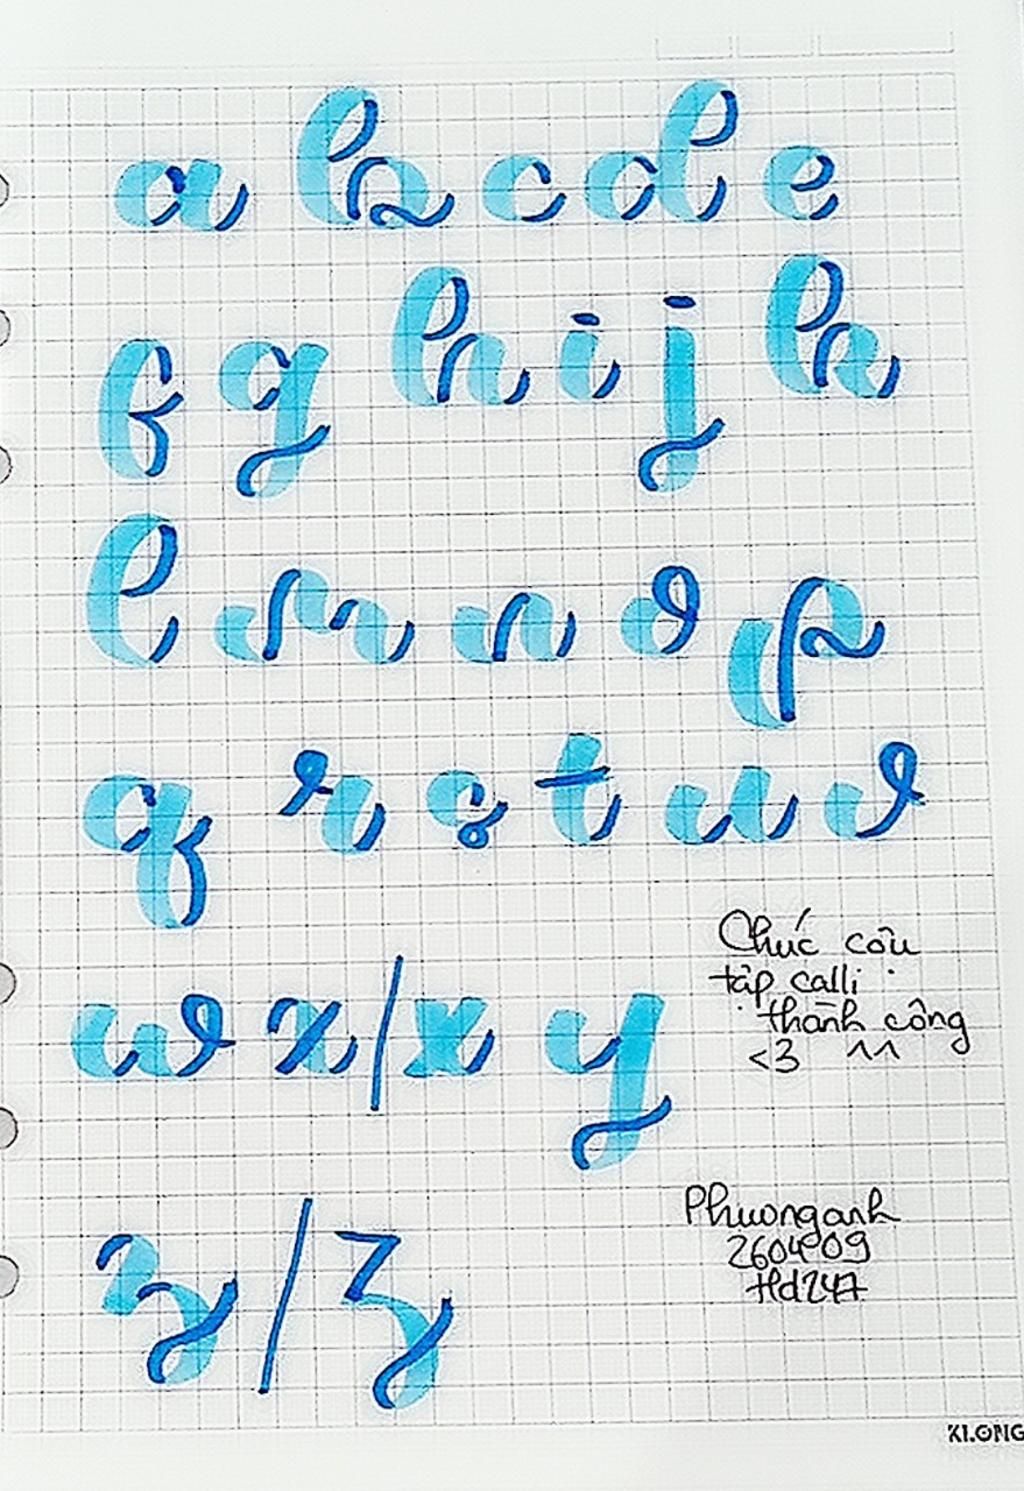 a b c d e
f g h i j k
l m n o p
q r s t u v
w x / x y
z / z
Chúc cậu
tập calli
thành công
<3 ^^
Phuonganh
260409
Hd247
KLONG